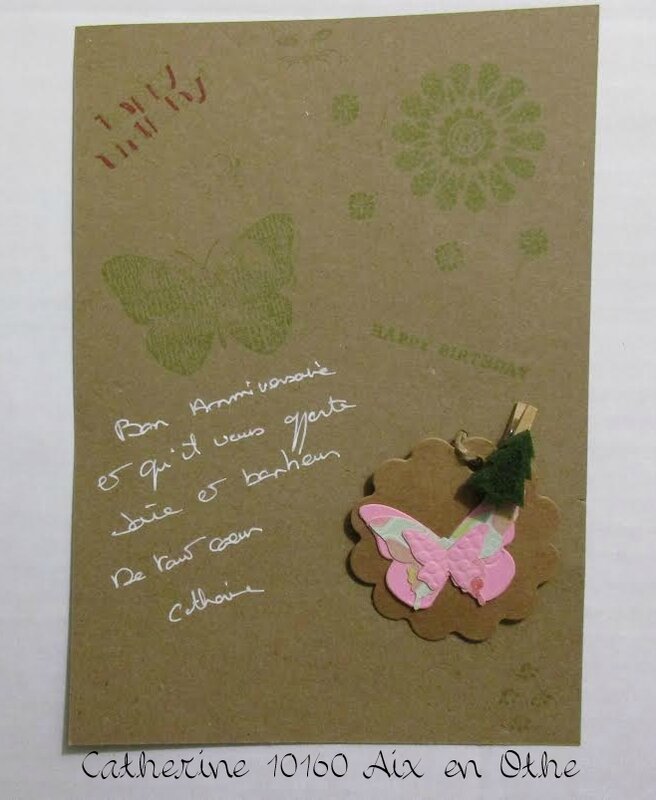 HAPPY BIRTHDAY
Bon Anniversaire
et qu'il vous apporte
Joie et bonheur
De tout coeur
Catherine
Catherine 10160 Aix en Othe